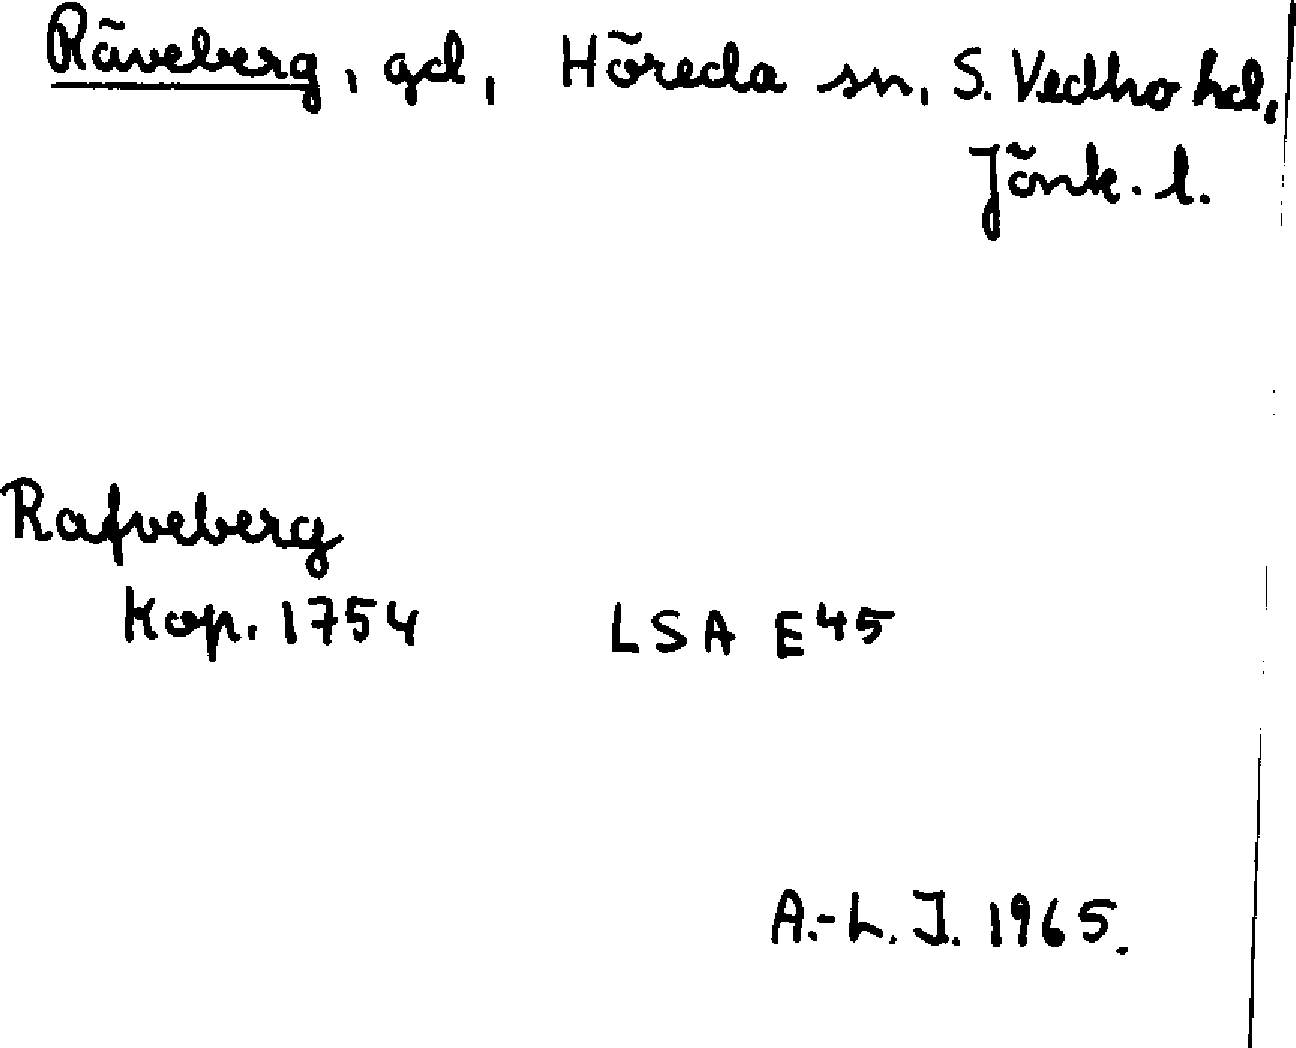 Räveberg, gd, Höreda sn, S. Vedbo hd,
Jönk. l.
Rafveberg
Kop. 1754 LSA E45
A.-L. J. 1965.